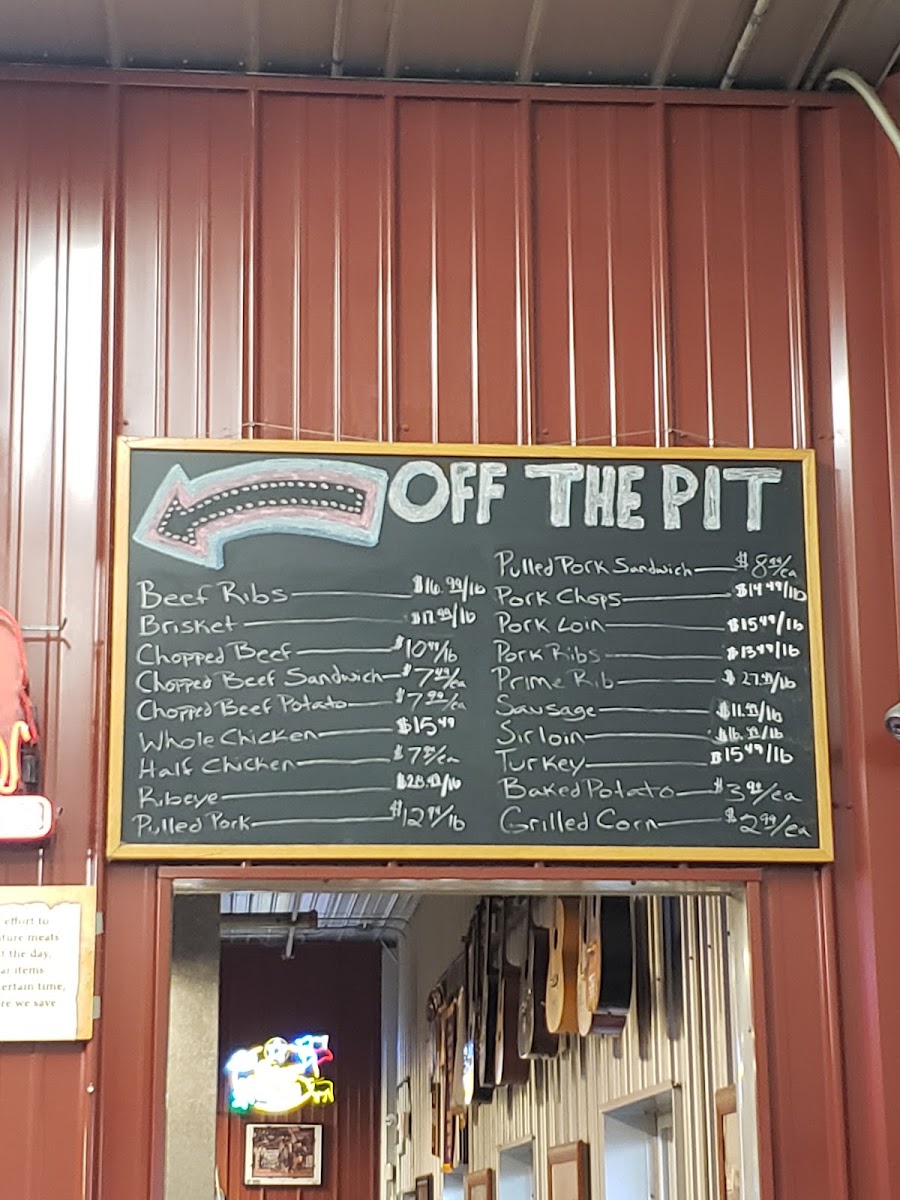 OFF THE PIT
Beef Ribs $16.99/lb
Brisket $17.99/lb
Chopped Beef $10.49/lb
Chopped Beef Sandwich $7.49/ea
Chopped Beef Potato $7.99/ea
Whole Chicken $15.49
Half Chicken /ea
Ribeye /lb
Pulled Pork /lb
Pulled Pork Sandwich /ea
Pork Chops $14.49/lb
Pork Loin $15.49/lb
Pork Ribs $13.49/lb
Prime Rib /lb
Sausage $11.99/lb
Sirloin /lb
Turkey $15.49/lb
Baked Potato /ea
Grilled Corn $2.99/ea
effort to
ture meats
the day,
ar items
ertain time,
re we save